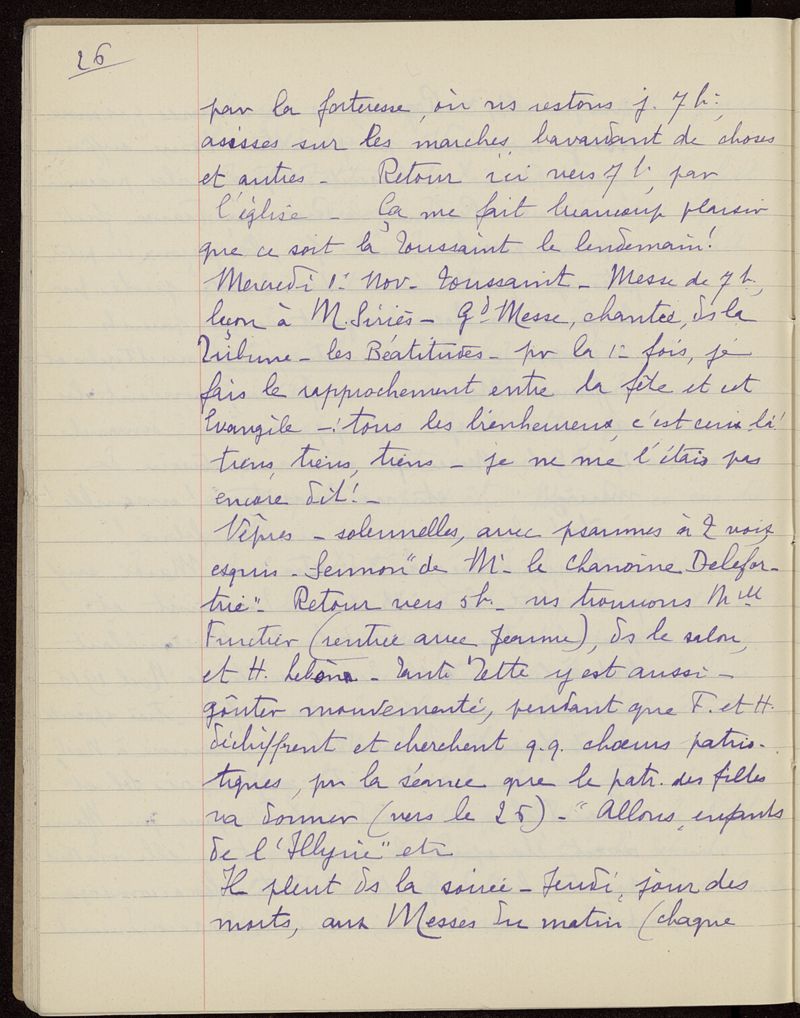 26
par la forteresse, où ns restons j. 7 h.,
assises sur les marches, bavardant de choses
et autres - Retour ici vers 7 h, par
l'église - Ça me fait beaucoup plaisir
que ce soit la Toussaint le lendemain!
Mercredi 1er Nov. Toussaint - Messe de 7 h.,
leçon à M. Siriès - Gd Messe, chantée, ds la
Tribune - les Béatitudes - pr la 1e fois, je
fais le rapprochement entre la fête et cet
Evangile - : tous les bienheureux, c'est ceux là!
tiens, tiens, tiens - je ne me l'étais pas
encore dit! -
Vêpres - solennelles, avec psaumes à 2 voix,
exquis - Sermon "de Mr le Chanoine Delefor-
trie" - Retour vers 5h - ns trouvons Mlle
(rentrée avec Jeanne), ds le salon,
et H. - Tante Zette y est aussi -
goûter mouvementé, pendant que F. et H.
déchiffrent et cherchent q.q. chœurs patrio-
tiques, pr la séance que le patr. des filles
va donner (vers le 25) - "Allons, enfants
de l'Illyrie" etc
Il pleut ds la soirée - Jeudi, jour des
morts, aux Messes du matin (chaque